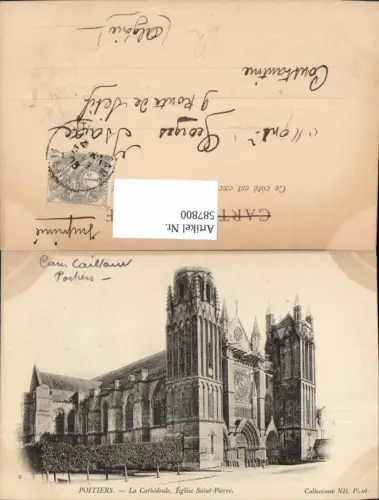 (Algérie)
Constantine
9 Route de Sétif
Georges
Mons.
CART
Ce côté est exc
Imprimé
Artikel Nr.
587800
Poitiers —
POITIERS. — La Cathédrale, Église Saint-Pierre.
Collections ND. Phot.